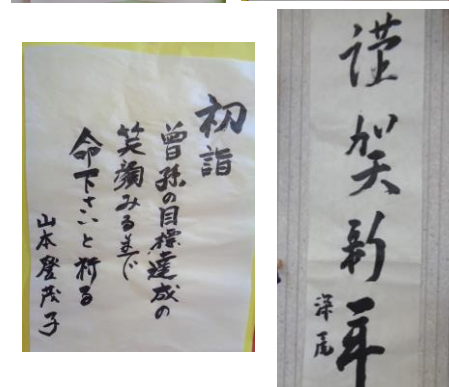 初詣
曽孫の目標達成の
笑顔みるまで
命下さいと祈る
山本登茂子
謹賀新年
深尾